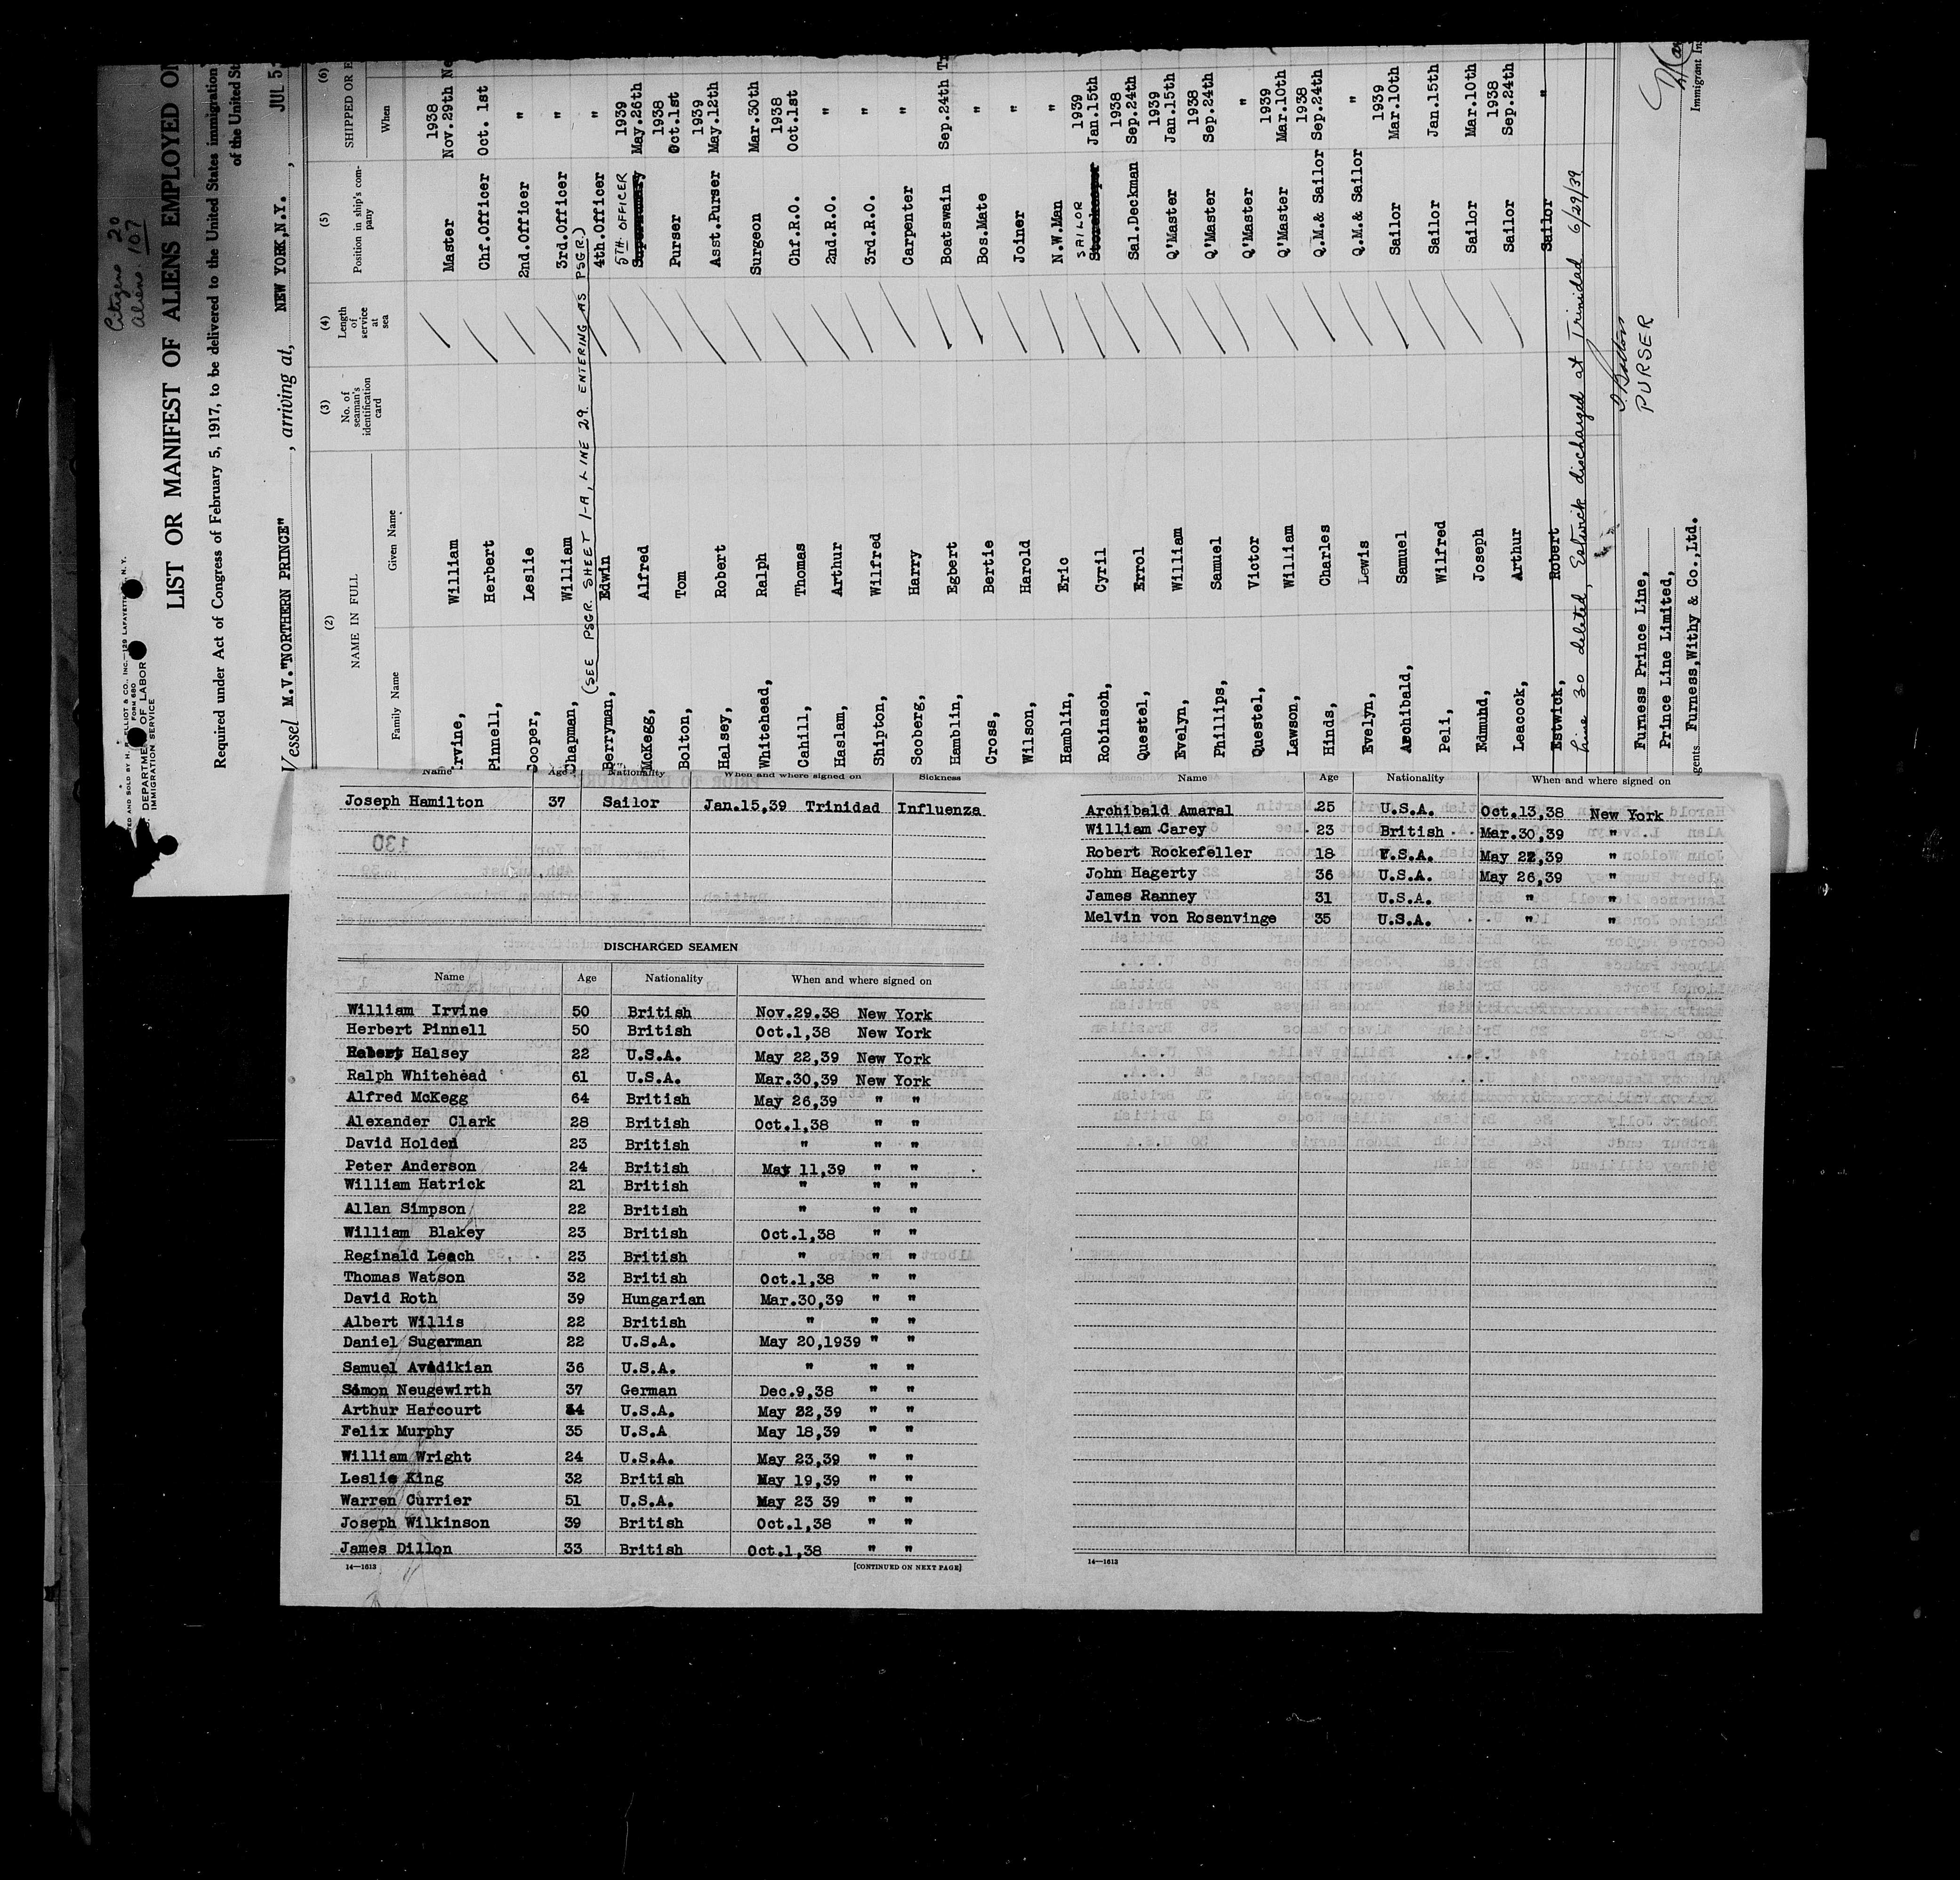 Citizens 20
Aliens 107
LIST OR MANIFEST OF ALIENS EMPLOYED ON
Required under Act of Congress of February 5, 1917, to be delivered to the United States immigration
of the United St
Vessel M.V."NORTHERN PRINCE" , arriving at, NEW YORK,N.Y. , JUL 5-
FORM 680
DEPARTMENT OF LABOR
IMMIGRATION SERVICE
(2) (3) (4) (5) (6)
NAME IN FULL No. of seaman's identification card Length of service at sea Position in ship's company SHIPPED OR E
Family Name Given Name When
Irvine, William Master 1938 Nov.29th Ne
Pinnell, Herbert Chf.Officer Oct. 1st
Cooper, Leslie 2nd.Officer "
Chapman, William 3rd.Officer "
(SEE PSGR. SHEET 1-A, LINE 29. ENTERING AS PSGR.)
Berryman, Edwin 4th.Officer "
McKegg, Alfred 5TH OFFICER 1939 May.26th
Bolton, Tom Purser 1938 Oct.1st
Halsey, Robert Asst.Purser 1939 May.12th
Whitehead, Ralph Surgeon Mar.30th
Cahill, Thomas Chf.R.O. 1938 Oct.1st
Haslam, Arthur 2nd.R.O. "
Shipton, Wilfred 3rd.R.O. "
Scoberg, Harry Carpenter "
Hamblin, Egbert Boatswain Sep.24th Tr
Cross, Bertie Bos.Mate "
Wilson, Harold Joiner "
Hamblin, Eric N.W.Man "
Robinson, Cyril SAILOR Storekeeper 1939 Jan.15th
Questel, Errol Sal.Deckman 1938 Sep.24th
Evelyn, William Q'Master 1939 Jan.15th
Phillips, Samuel Q'Master 1938 Sep.24th
Questel, Victor Q'Master "
Lawson, William Q'Master 1939 Mar.10th
Hinds, Charles Q.M.& Sailor 1938 Sep.24th
Evelyn, Lewis Q.M.& Sailor "
Archibald, Samuel Sailor 1939 Mar.10th
Peli, Wilfred Sailor Jan.15th
Edmuhd, Joseph Sailor Mar.10th
Leacock, Arthur Sailor 1938 Sep.24th
Estwick, Robert Sailor "
Line 30 deleted, Estwick discharged at Trinidad 6/29/39
PURSER
Furness Prince Line,
Prince Line Limited,
gents Furness,Withy & Co.,Ltd.
Immigrant In
Name Age Nationality When and where signed on Sickness
Joseph Hamilton 37 Sailor Jan.15,39 Trinidad Influenza
DISCHARGED SEAMEN
Name Age Nationality When and where signed on
William Irvine 50 British Nov.29.38 New York
Herbert Pinnell 50 British Oct.1,38 New York
Robert Halsey 22 U.S.A. May 22,39 New York
Ralph Whitehead 61 U.S.A. Mar.30,39 New York
Alfred McKegg 64 British May 26,39 " "
Alexander Clark 28 British Oct.1,38 " "
David Holden 23 British " " "
Peter Anderson 24 British May 11,39 " "
William Hatrick 21 British " " "
Allan Simpson 22 British " " "
William Blakey 23 British Oct.1,38 " "
Reginald Leach 23 British " " "
Thomas Watson 32 British Oct.1,38 " "
David Roth 39 Hungarian Mar.30,39 " "
Albert Willis 22 British " " "
Daniel Sugarman 22 U.S.A. May 20,1939 " "
Samuel Avadikian 36 U.S.A. " " "
Simon Neugewirth 37 German Dec.9,38 " "
Arthur Harcourt U.S.A. May 22,39 " "
Felix Murphy 35 U.S.A May 18,39 " "
William Wright 24 U.S.A. May 23,39 " "
Leslie King 32 British May 19,39 " "
Warren Currier 51 U.S.A. May 23 39 " "
Joseph Wilkinson 39 British Oct.1,38 " "
James Dillon 33 British Oct.1,38 " "
14—1613 [CONTINUED ON NEXT PAGE]
Name Age Nationality When and where signed on
Archibald Amaral 25 U.S.A. Oct.13,38 New York
William Carey 23 British Mar.30,39 "
Robert Rockefeller 18 U.S.A. May 22,39 "
John Hagerty 36 U.S.A. May 26,39 "
James Ranney 31 U.S.A. " "
Melvin von Rosenvinge 35 U.S.A. " "
14—1613